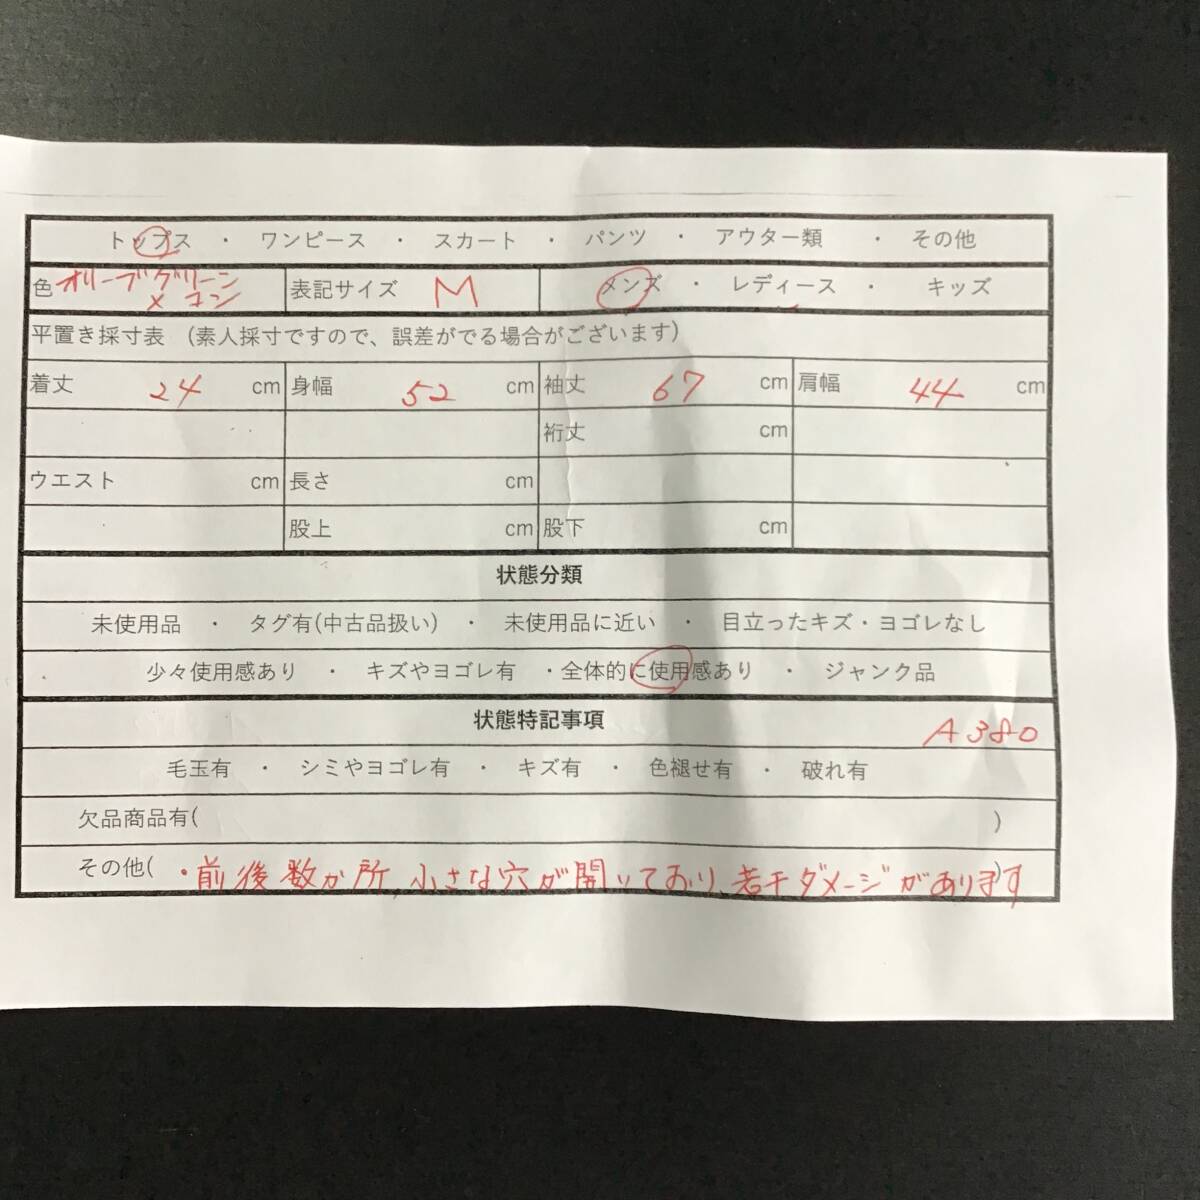 トップス ・ ワンピース ・ スカート ・ パンツ ・ アウター類 ・ その他
色 オリーブグリーン × コン 表記サイズ M メンズ ・ レディース ・ キッズ
平置き採寸表 (素人採寸ですので、誤差がでる場合がございます)
着丈 24 cm 身幅 52 cm 袖丈 67 cm 肩幅 44 cm
裄丈 cm
ウエスト cm 長さ cm
股上 cm 股下 cm
状態分類
未使用品 ・ タグ有(中古品扱い) ・ 未使用品に近い ・ 目立ったキズ・ヨゴレなし
少々使用感あり ・ キズやヨゴレ有 ・全体的に使用感あり ・ ジャンク品
状態特記事項 A380
毛玉有 ・ シミやヨゴレ有 ・ キズ有 ・ 色褪せ有 ・ 破れ有
欠品商品有( )
その他( ・前後数か所、小さな穴が開いており、若干ダメージがあります)